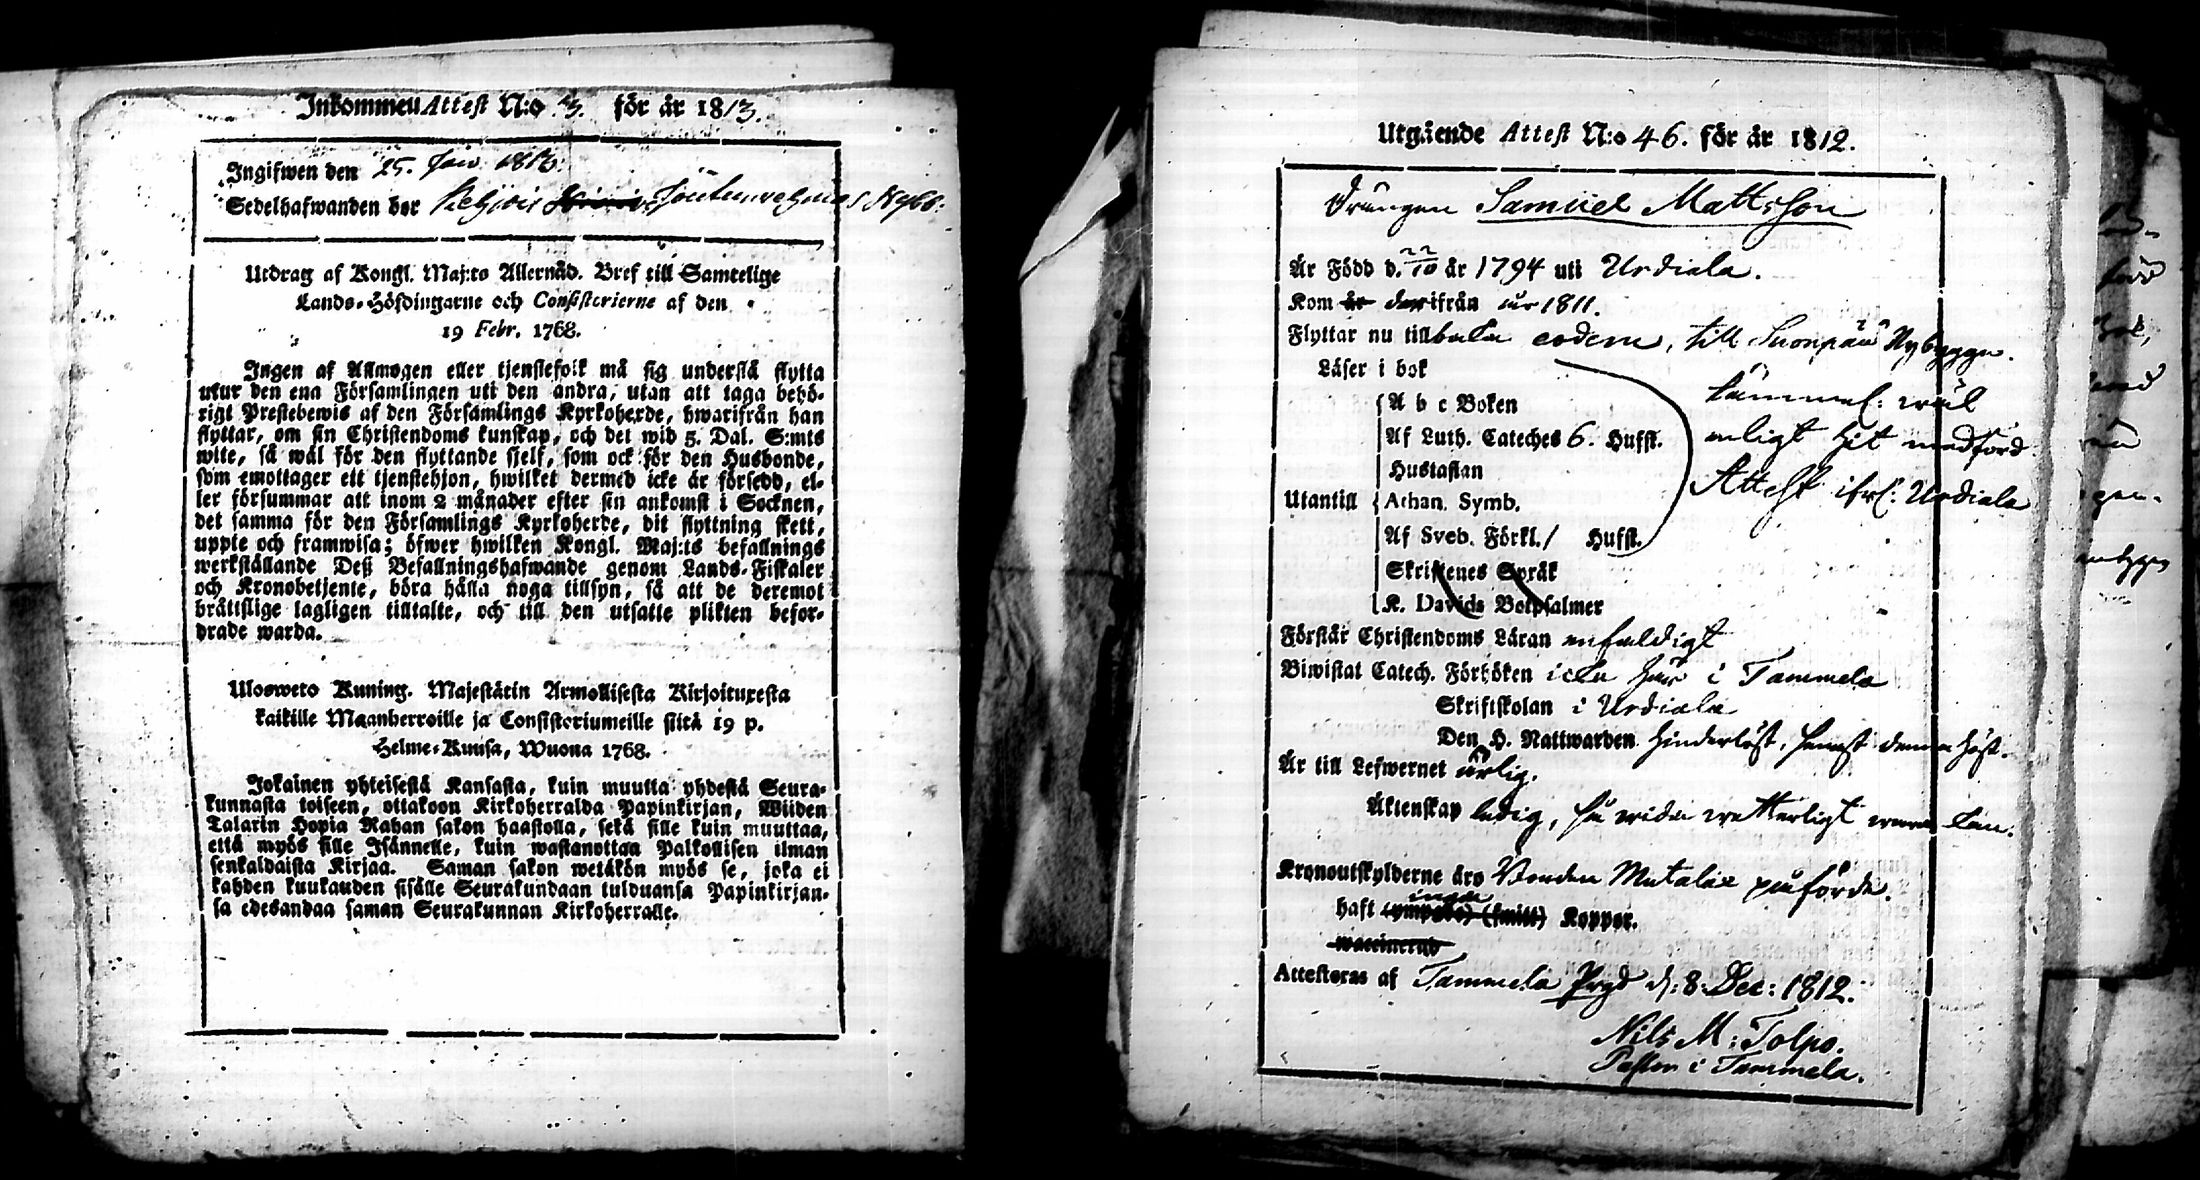 Inkommen Attest N:o 3. för år 1813.
Ingifwen den 25. Jan. 1813.
Sedelhafwanden bor
Utdrag af Kongl. Maj:ts Allernåd. Bref till Samtelige
Lands-Höfdingarne och Consistorierne af den
19 Febr. 1768.
Ingen af Allmogen eller tjenstefolk må sig understå flytta
utur den ena Församlingen uti den andra, utan att taga behö-
rigt Prestebewis af den Församlings Kyrkoherde, hwarifrån han
flyttar, om sin Christendoms kunskap, och det wid 5. Dal. S:mts
wite, så wäl för den flyttande sjelf, som ock för den Husbonde,
som emottager ett tjenstehjon, hwilket dermed icke är försedd, el-
ler försummar att inom 2 månader efter sin ankomst i Socknen,
det samma för den Församlings Kyrkoherde, dit flyttning skett,
uppte och framwisa; öfwer hwilken Kongl. Maj:ts befallnings
werkställande Deß Befallningshafwande genom Lands-Fiskaler
och Kronobetjente, böra hålla noga tillsyn, så att de deremot
bråttslige lagligen tilltalte, och till den utsatte plikten befor-
drade warda.
Ulosweto Kuning. Majestätin Armollisesta Kirjoituxesta
kaikille Maanherroille ja Consistoriumeille siitä 19 p.
Helme-Kuusa, Wuona 1768.
Jokainen yhteisestä Kansasta, kuin muutta yhdestä Seura-
kunnasta toiseen, ottakoon Kirkoherralda Papinkirjan, Wiiden
Talarin Hopia Rahan sakon haastolla, sekä sille kuin muuttaa,
että myös sille Isännelle, kuin wastanottaa Palkollisen ilman
senkaldaista Kirjaa. Saman sakon wetäkön myös se, joka ei
kahden kuukauden sisälle Seurakundaan tulduansa Papinkirjan-
sa edesandaa saman Seurakunnan Kirkoherralle.
Utgående Attest N:o 46. för år 1812.
Drängen Samuel Mattsson
Är Född d. 22/10 år 1794 uti Urdiala.
Kom år derifrån år 1811.
Flyttar nu tillbaka eodem, till Suonpää Nybygge.
Läser i bok
A b c Boken
Af Luth. Cateches 6. Hufst.
Hustaflan
Utantill Athan. Symb.
Af Sveb. Förkl. Hufst.
Skriftenes Språk
K. Davids Botpsalmer
tämmel. wäl
enligt hit medförd
Attest ifrån Urdiala
Förstår Christendoms Läran enfaldigt
Biwistat Catech. Förhören icke här i Tammela
Skriftskolan i Urdiala
Den H. Nattwarden hinderlöst, senast denna höst.
Är till Lefwernet ärlig.
Äktenskap ledig, så wida wetterligt wara kan.
Kronoutskylderne äro påförde.
haft inga (ympade) (smitt) Koppor.
waccinerad
Attesteras af Tammela Prgd d. 8 Dec: 1812.
Nils M: Tolpo.
Pastor i Tammela.